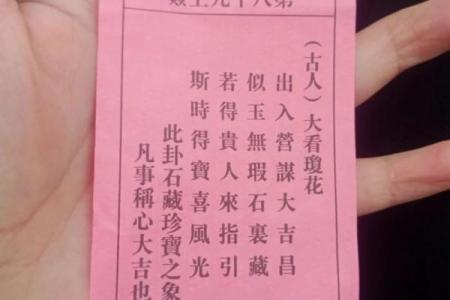 第八十九上簽
（古人）大看瓊花
出入營謀大吉昌
似玉無瑕石裏藏
若得貴人來指引
斯時得寶喜風光
此卦石藏珍寶之象
凡事稱心大吉也